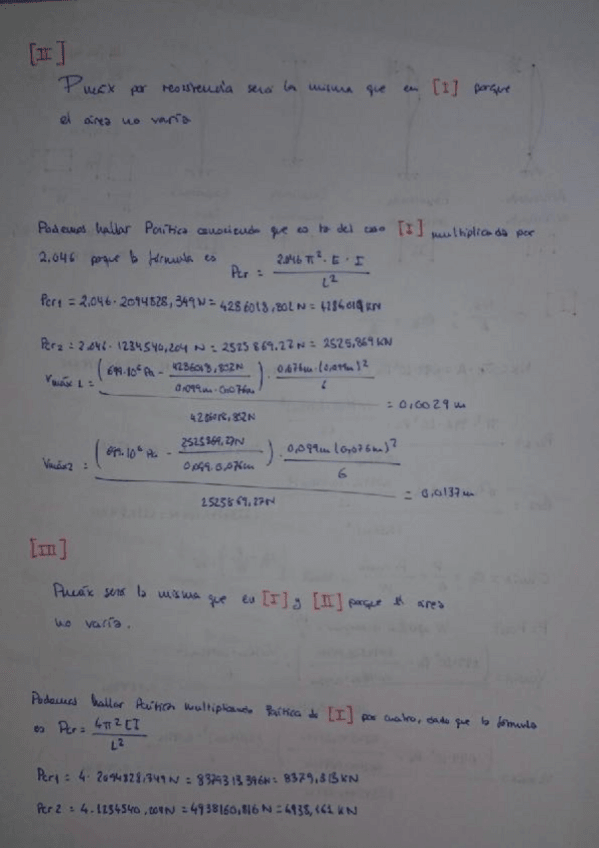 [II]
Pmáx por resistencia será la misma que en [I] porque
el área no varía
Podemos hallar Pcrítica conociendo que es la del caso [I] multiplicada por
2,046 porque la fórmula es Pcr = 2.046 π² · E · I / L²
Pcr1 = 2,046 · 2094828,349 N = 4286018,802 N = 4286,018 KN
Pcr2 = 2,046 · 1234540,204 N = 2525869.27 N = 2525,869 KN
Vmáx 1 = ( · 10⁶ Pa - 4286018,802N / 0,099m · 0,076m) · 0,076m · (0,099m)² / 6 / 4286018,802N = 0,0029 m
Vmáx2 = ( · 10⁶ Pa - 2525869,27N / 0,099 · 0,076m) · 0,099m (0,076m)² / 6 / 2525869,27N = 0,0137 m
[III]
Pmáx será la misma que en [I] y [II] porque el área
no varía.
Podemos hallar Pcrítica multiplicando Pcrítica de [I] por cuatro, dado que la fórmula
es Pcr = 4π² E I / L²
Pcr1 = 4 · 2094828.349 N = 8379313.396N = 8379,313 KN
Pcr2 = 4 · 1234540,204 N = 4938160,816 N = 4938,161 KN